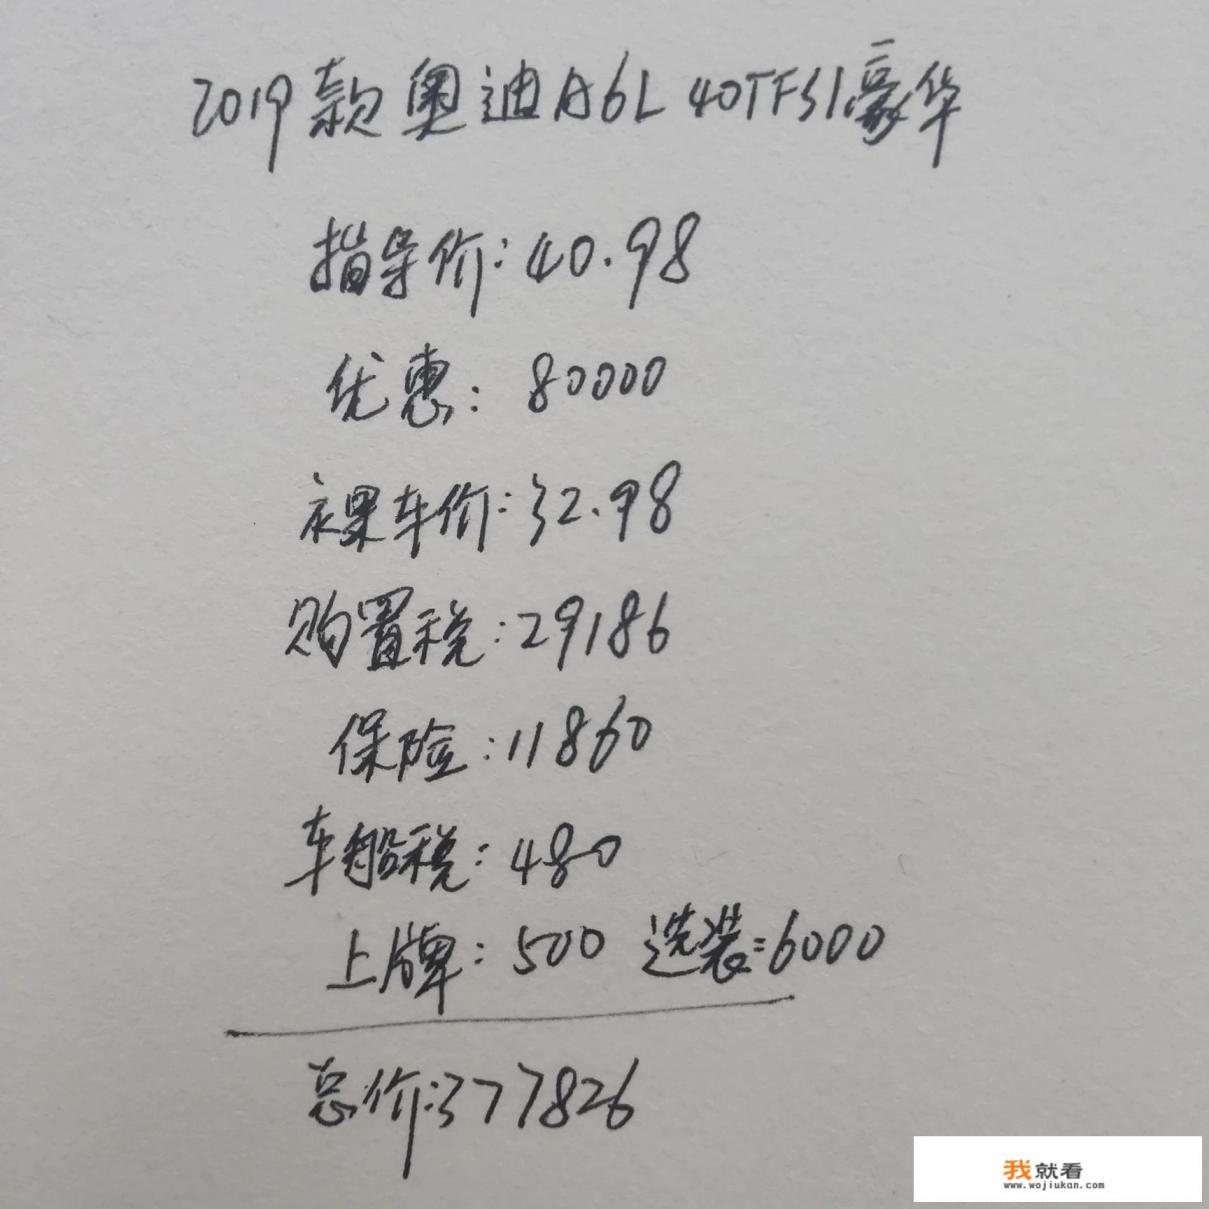 2019款奥迪A6L 40TFSI豪华
指导价:40.98
优惠:80000
裸车价:32.98
购置税:29186
保险:11860
车船税:480
上牌:500 选装:6000
总价:377826
我就看
www.wojiukan.com